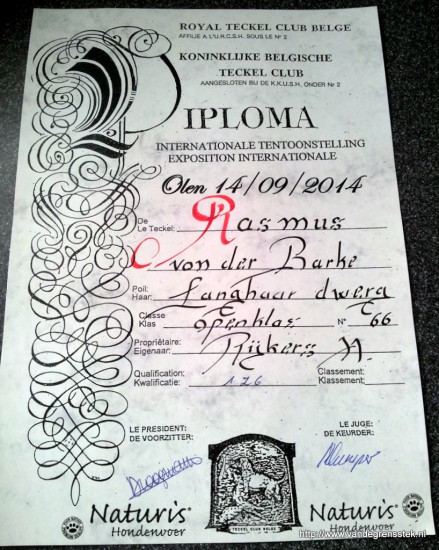 ROYAL TECKEL CLUB BELGE
AFFILIE A L'U.R.C.S.H. SOUS LE N° 2
KONINKLIJKE BELGISCHE
TECKEL CLUB
AANGESLOTEN BIJ DE K.K.U.S.H. ONDER Nr 2
DIPLOMA
INTERNATIONALE TENTOONSTELLING
EXPOSITION INTERNATIONALE
Olen 14/09/2014
De
Le Teckel: Rasmus
von der Barke
Poil:
Haar: Langhaar dwerg
Classe
Klas openklas N° 66
Propriétaire:
Eigenaar: Rijkers A.
Qualification: Classement:
Kwalificatie: 1 Klassement:
LE PRESIDENT: LE JUGE:
DE VOORZITTER: DE KEURDER:
TECKEL CLUB BELGE
Naturis® Naturis®
Hondenvoer Hondenvoer
http://www.vandegrensstek.nl